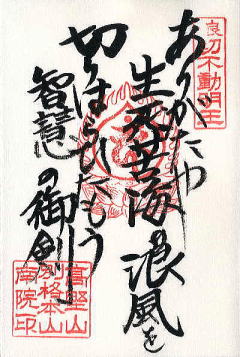 浪切不動明王
ありがたや
生死苦海の浪風を
切りはらひたもう
智慧の御剣
高野山
別格本山
南院印